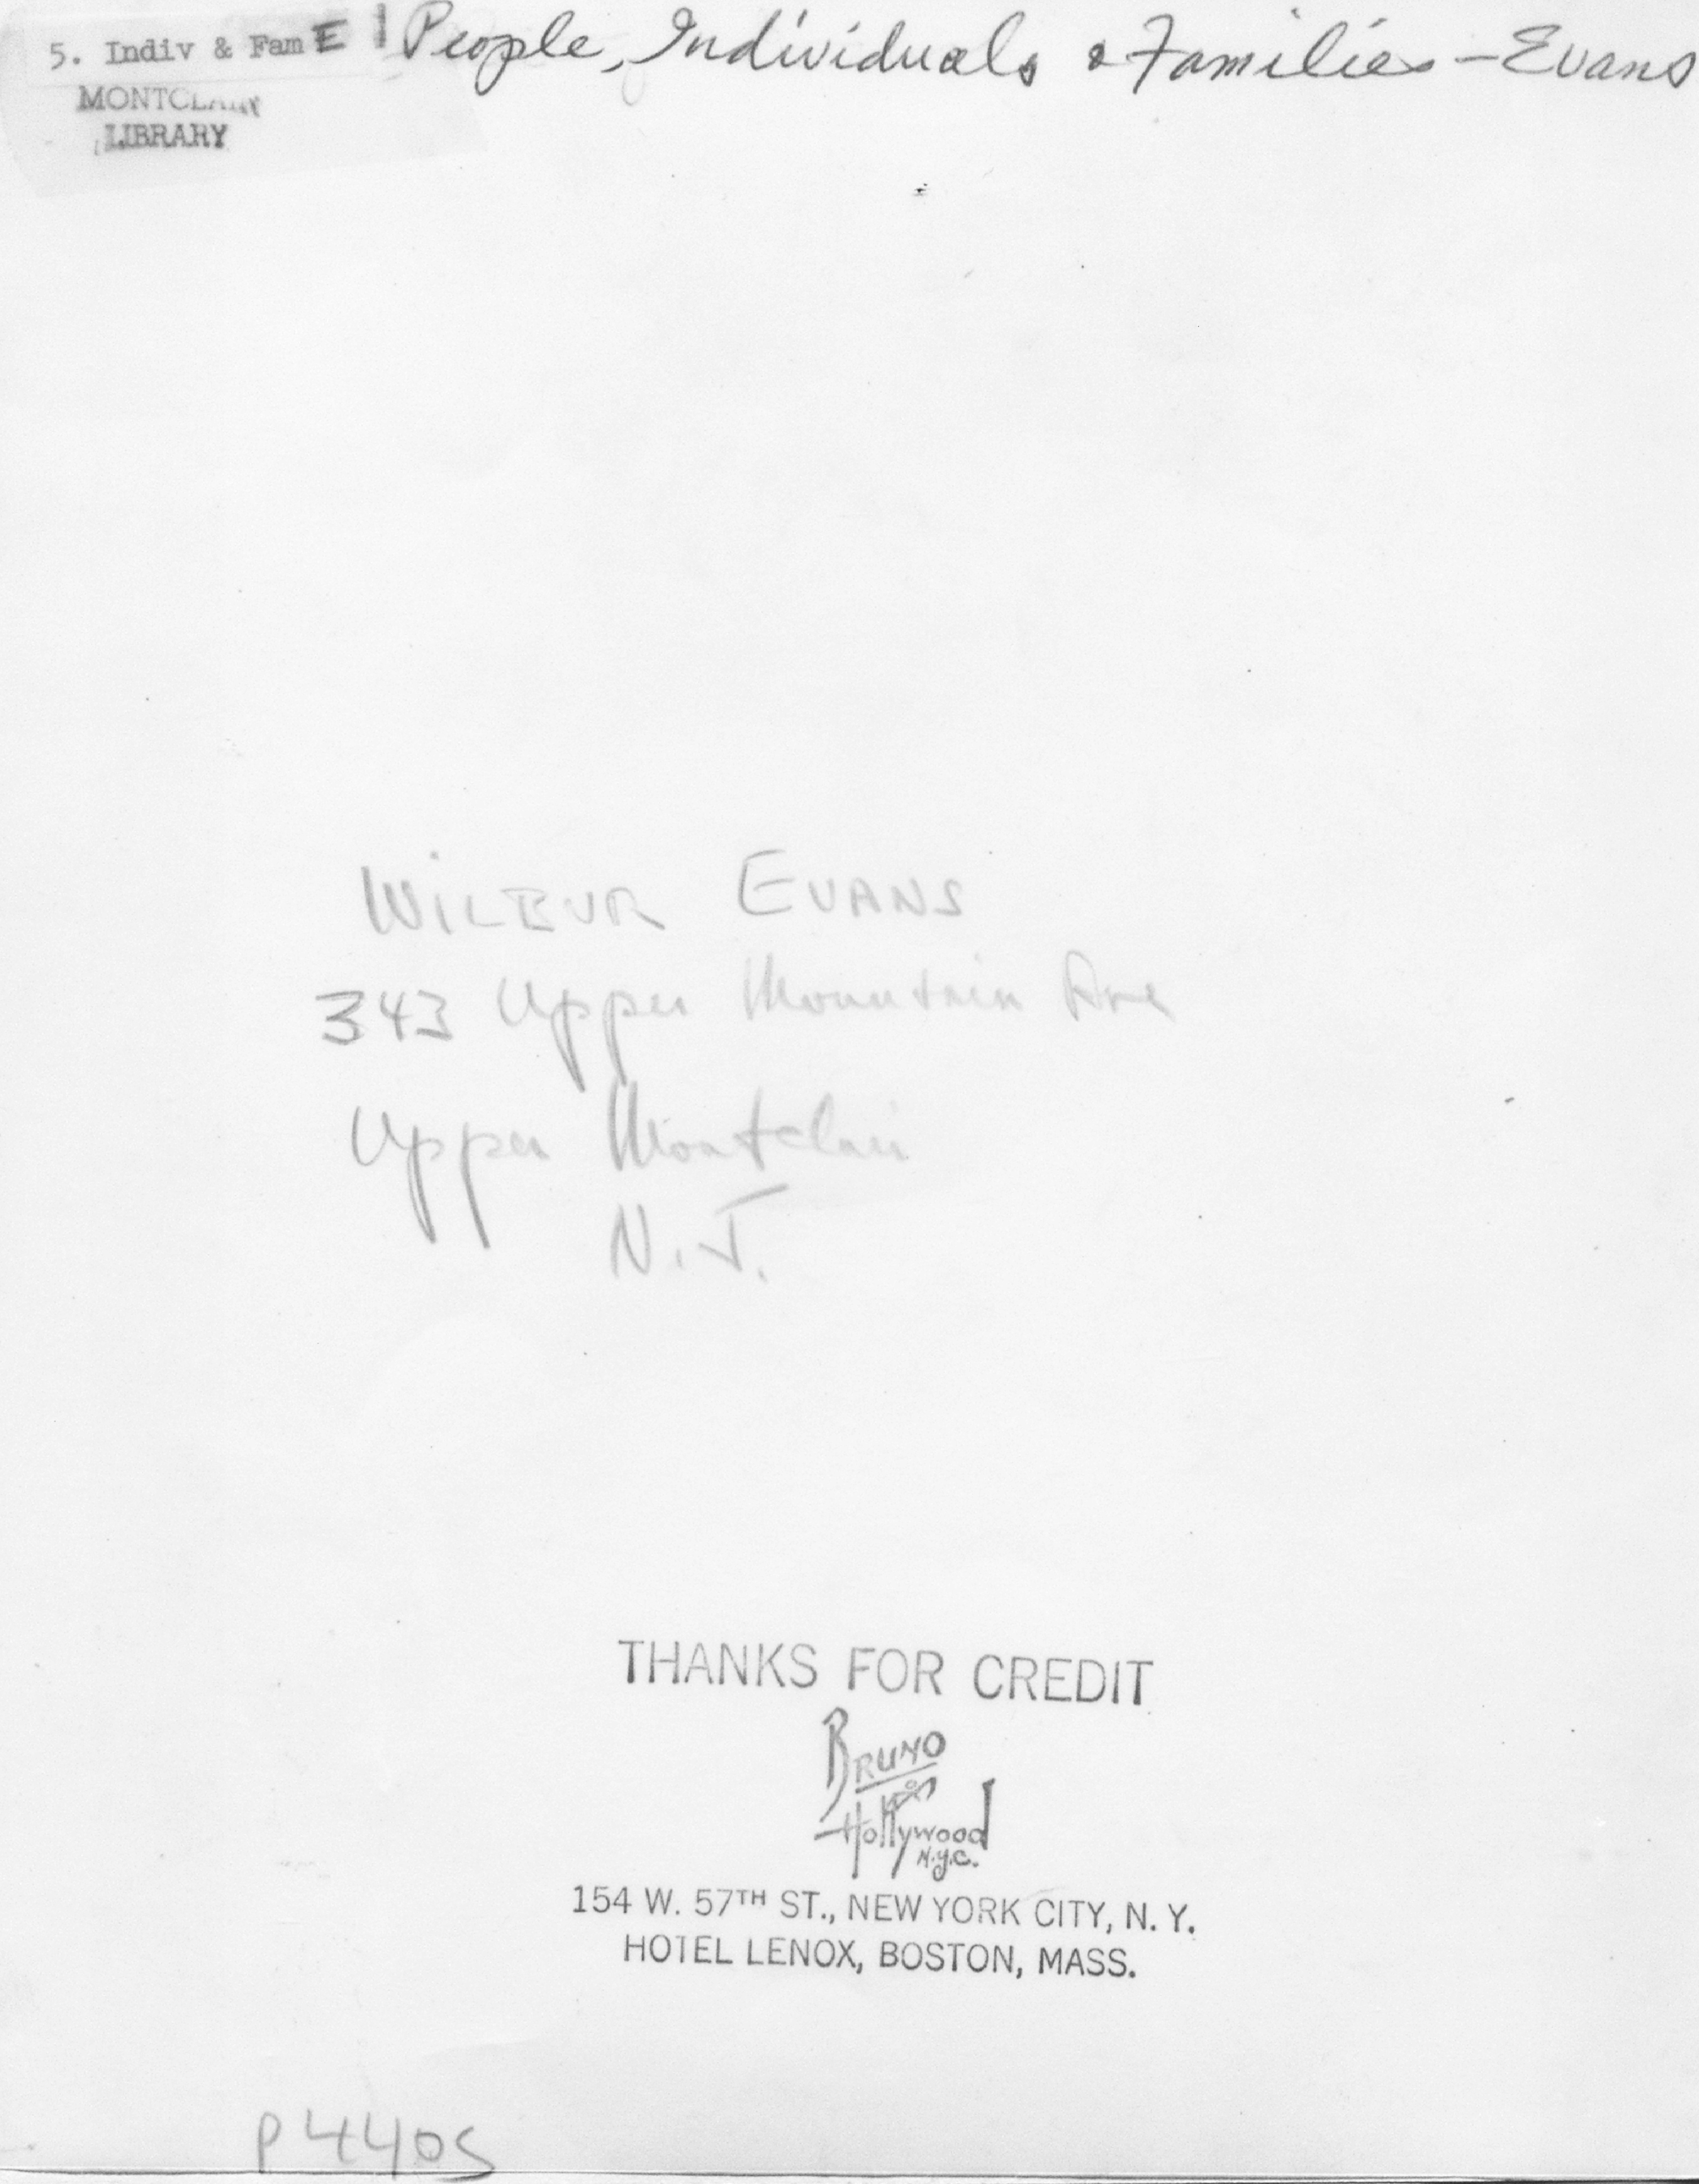 5. Indiv & Fam E 1 People, Individuals & Families - Evans
MONTCLAIR
LIBRARY
WILBUR EVANS
343 Upper Mountain Ave
Upper Montclair
N.J.
THANKS FOR CREDIT
BRUNO
of
Hollywood
N.Y.C.
154 W. 57TH ST., NEW YORK CITY, N. Y.
HOTEL LENOX, BOSTON, MASS.
P4405